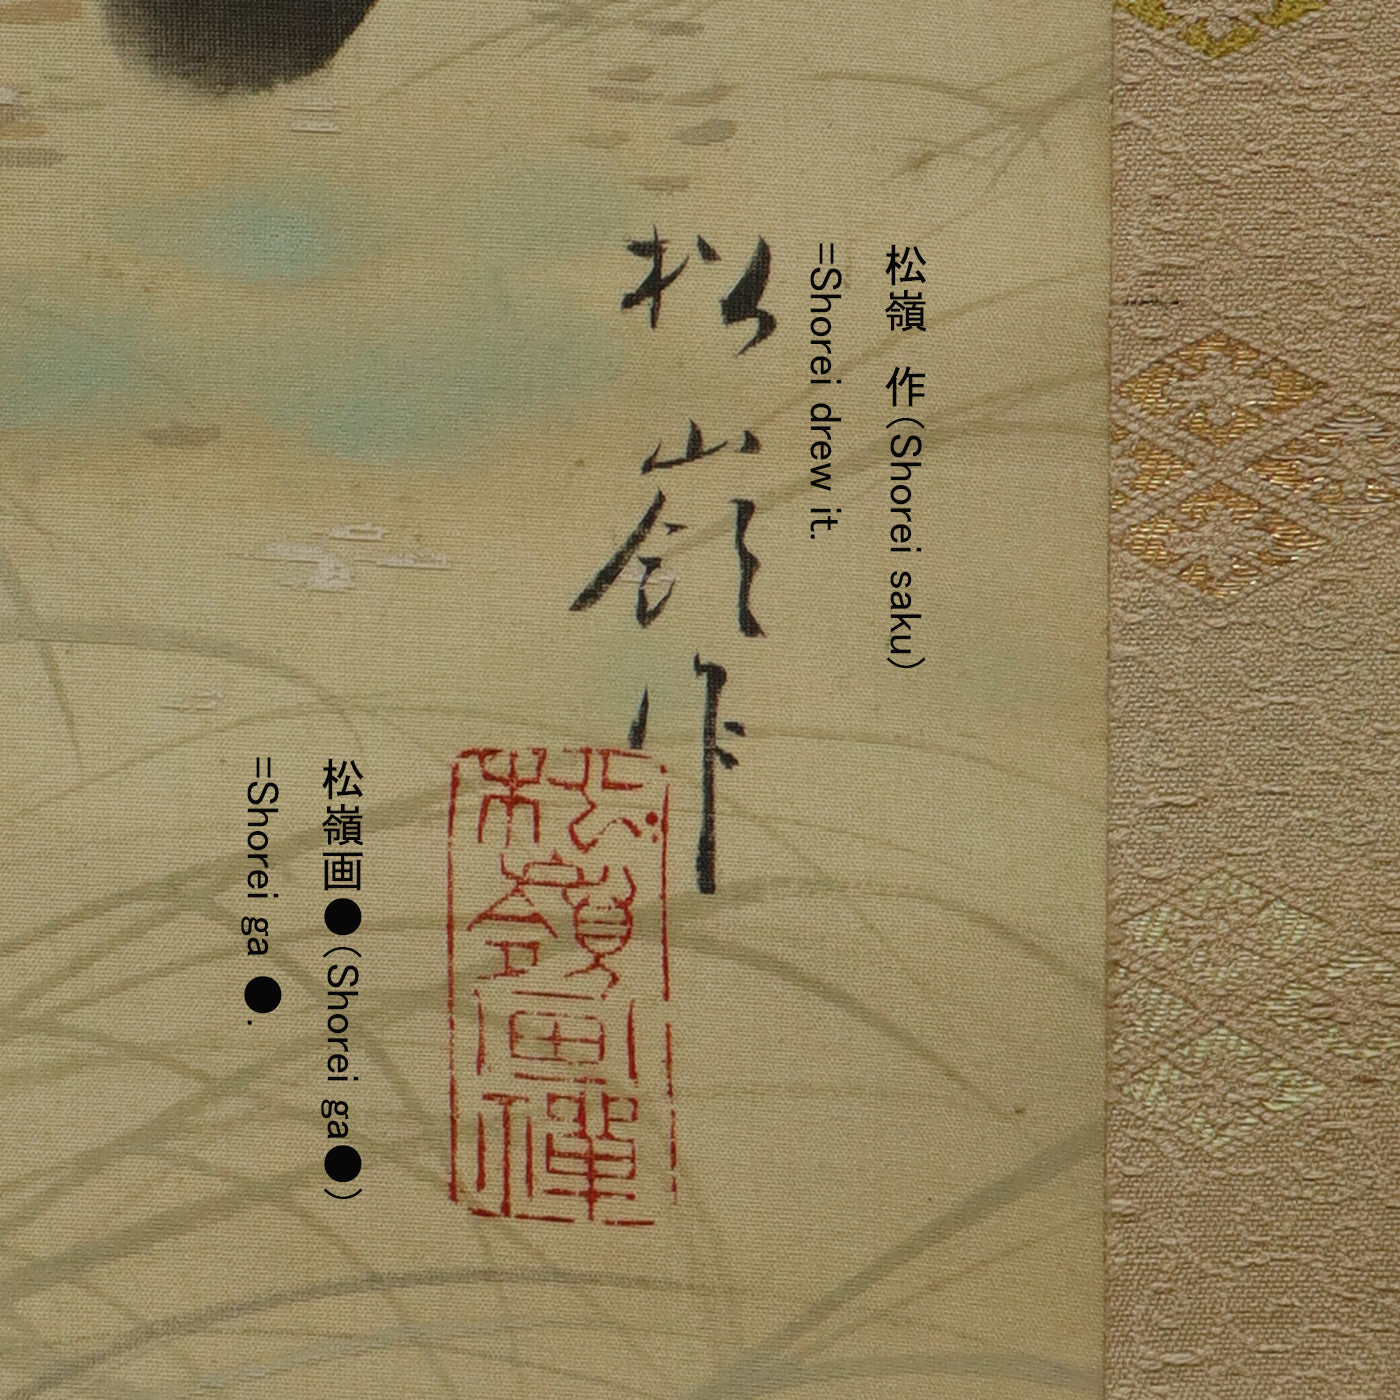 松嶺 作(Shorei saku)
=Shorei drew it.
松嶺作
松嶺画禅
松嶺画●(Shorei ga●)
=Shorei ga ●.